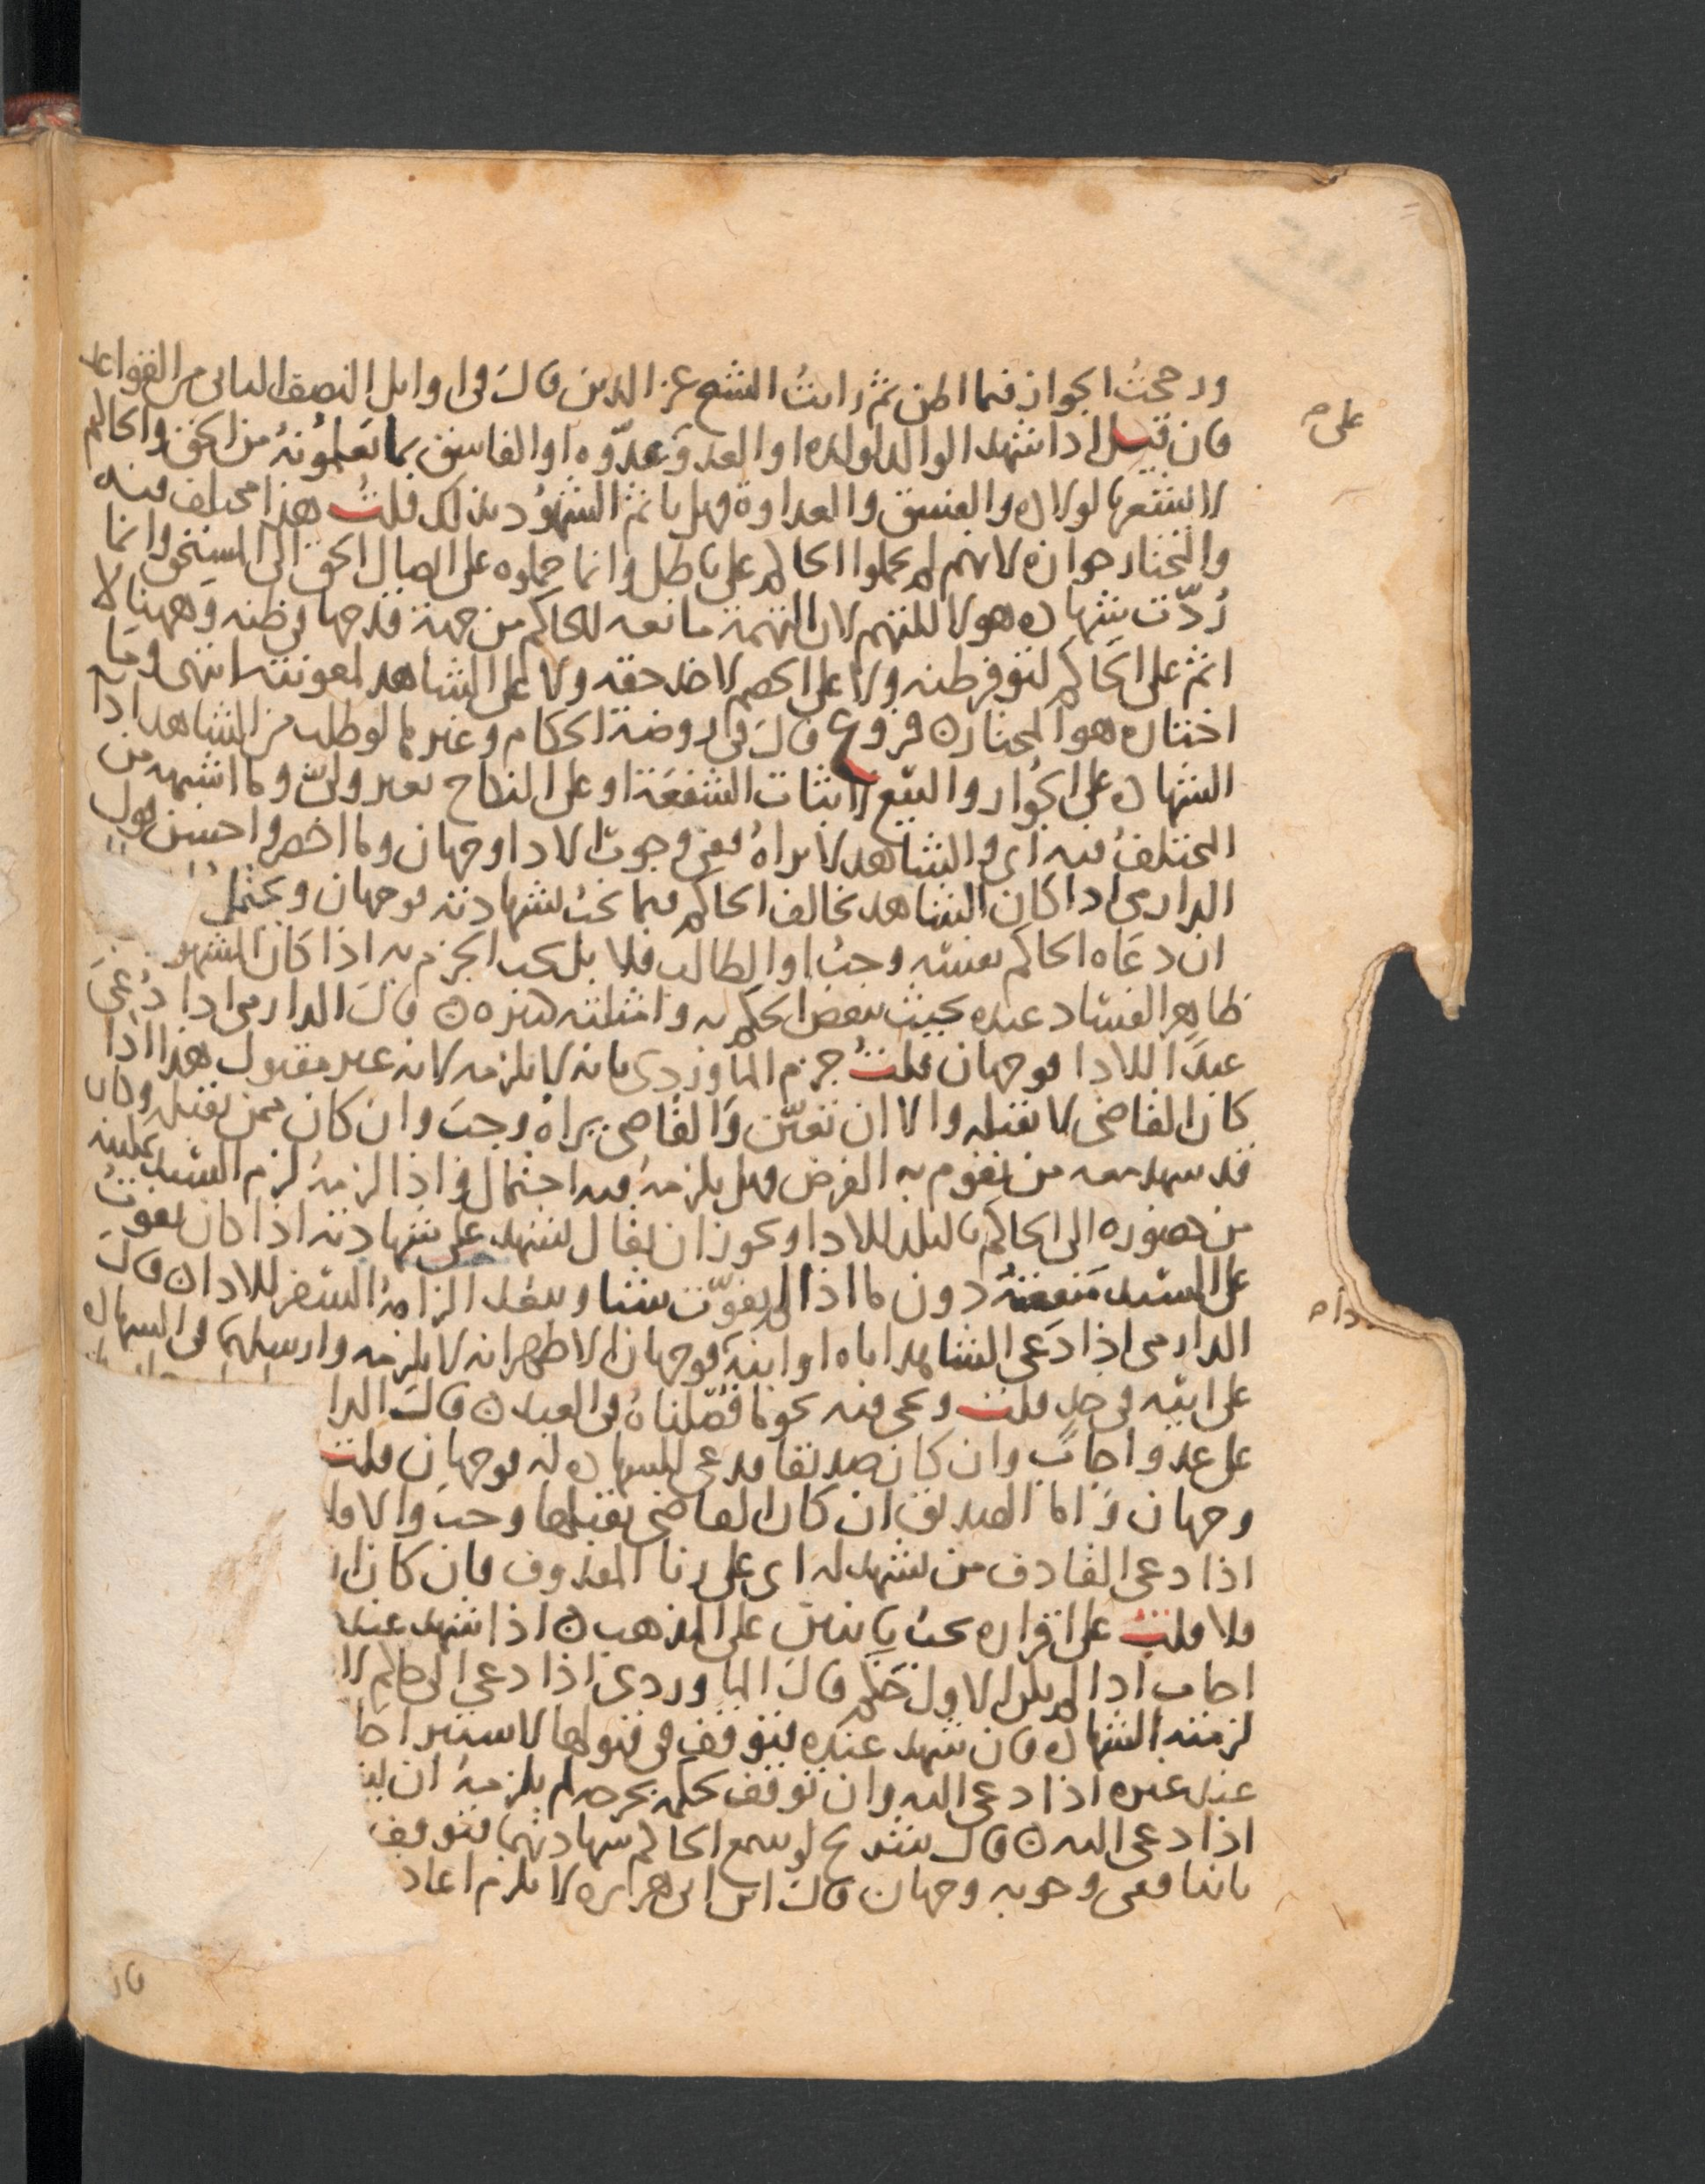 ورجحتُ الجواز فيما اظن ثم رايتُ الشيخ عز الدين قال في اوايل النصف الثاني من القواعد
فان قيل اذا شهد الوالد لولده او العدو على عدوّه او الفاسق بما يعلمونه من الحق والحاكم
لا يشعر بالولاده والفسق والعداوة فهل ياثم الشهُود بذلك قلتُ هذا مختلف فيه
والمختار جوازه لانهم لم يحملوا الحاكم على باطل وانما حملوه على ايصال الحق الى المستحق وانما
رُدّت شهاده هولا للتهم لان التهمة مانعه للحاكم من جهة قدحها في ظنه وههنا لا
اثم على الحاكم لتوفر ظنه ولا على الخصم لاخذ حقه ولا على الشاهد لمعونته انتهى وما
اختاره هو المختار ه فروع قال في روضة الحكام وغيرها لو طلب من الشاهد اذا
الشهاده على الجوار والبيع لاثبات الشفعَة او على النكاح بغير ولىّ وما اشبهه من
المختلفُ فيه اى والشاهد لا يراهُ ففى وجوبُ الادا وجهان وما اخصر واحسن قول
الدارمى اذا كان الشاهد يخالف الحاكم فيما تحت شهادته فوجهان ويحتمل
ان دعَاه الحاكم بنفسه وجبُ او الطالب فلا بل يجب الجزم به اذا كان المشهو
ظاهر الفساد عنده بحيث ينقض الحكم به وامثلته كثيره ه قال الدارمى اذا دُعىَ
عبدًا للادا فوجهان قلتُ جزم الماوردى بانه لا يلزمه لانه غير مقبول هذا اذا
كان القاضى لا يقبله والا ان تعيّن والقاضى يراهُ وجبَ وان كان ممن يقبله وكان
قد شهد معه من يقوم به الفرض فهل يلزمهُ فيه احتمال واذا لزمهُ لزم السيد تمكينه
من حضوره الى الحاكم بالبلد للادا ويجوز ان يقال ليشهد على شهادته اذا كان يفوتُ
على السيد منفعتهُ دون ما اذا لم يفوّت شيئا ويبعد الزامهُ السفر للادا ه قال
الدارمى اذا دَعى الشاهد اباه او ابنهُ فوجهان الاظهر انه لا يلزمه وارسلهما فى الشهاده
على ابيه فى حد قلتُ ويجى فيه نحو ما فصّلناهُ فى العبد ه قالَ الدا
على عدو اجابَ وان كان صديقا فدعى للشهاده له فوجهان قلت
وجهان واما الصديق ان كان القاضى يقبلها وجبَ والا فلا
اذا دعى القاذف من يشهد له اى على زنا المقذوف فان كان ا
فلا قلتُ على اقراره يجب باثنين على المذهب ه اذا شهد عند
اجاب اذا لم يكن الاول حَكم قالَ الماوردى اذا دعى الى حاكم لا
لزمته الشهاده فان شهد عنده فتوقف فى قبولها لاستبرا حا
عند غيره اذا دعى اليه وان توقف لحكمه بجرحه لم يلزمهُ ان يشـ
اذا دعى اليه ه قال شريح لو سمع الحاكم شهادتهما فتوقف
باثنا ففى وجوبه وجهان قال ابن ابى هريره لا يلزم اعاد
على م
دام
قا